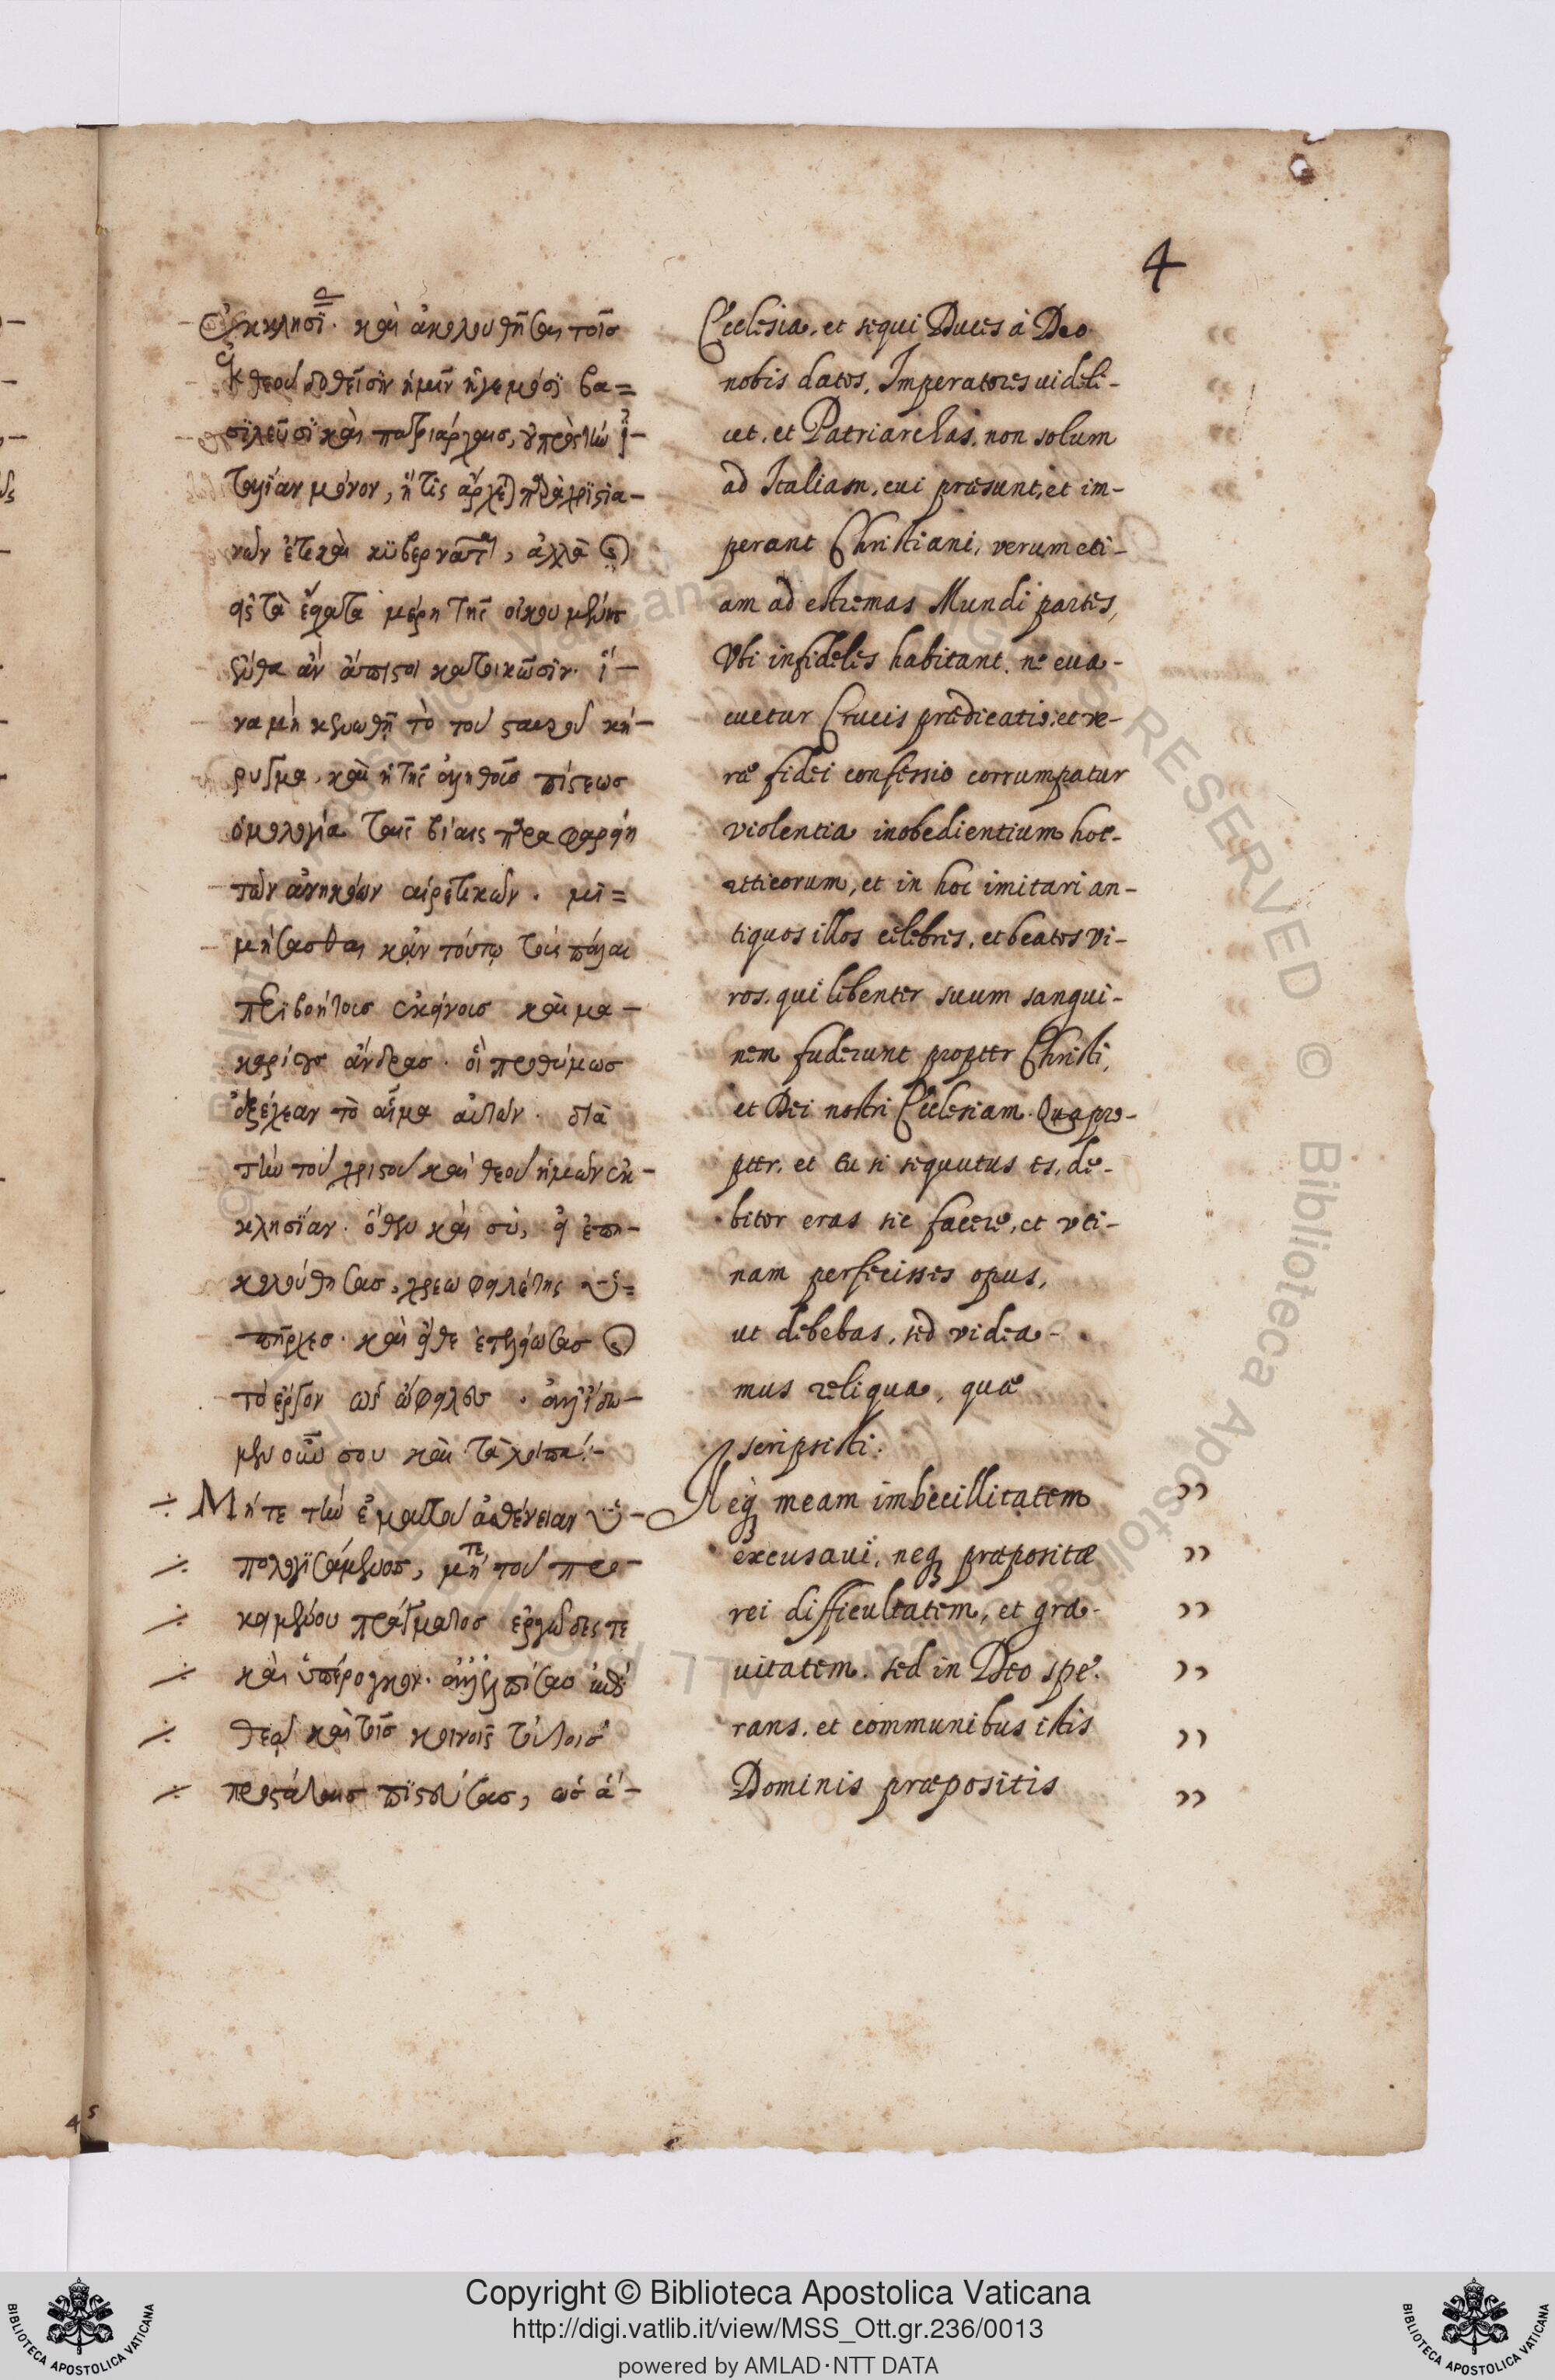 4
ἐκκλησί. καὶ ἀκολουθῆσαι τοῖσ
ἐκ θεοῦ δοθεῖσϊν ἡμῖν ἡγεμόσϊ βα=
σϊλεῦσϊ καὶ πατριάρχαισ, οὐ πρὸς τὴν ἰ-
ταλίαν μόνον, ἥτις ἄρχεται παρὰ χρϊστια-
νῶν ἔτε καὶ κϋβερνᾶται, ἀλλὰ καὶ
εἰς τὰ ἔσχατα μέρη τῆς οἰκουμένησ
ἔνθα ἂν ἄπιστοι κατοικῶσϊν. ἵ-
να μὴ κενωθῇ τὸ τοῦ σταυροῦ κή-
ρυγμα, καὶ ἡ τῆς ἀληθοῦσ πίστεωσ
ὁμολογία ταῖς βίαις παραφθαρείη
τῶν ἀνηκόων αἱρετικῶν. μϊ=
μήσασθαι κἀν τούτῳ τοὺς πάλαι
περϊβοήτουσ ἐκείνουσ καὶ μα-
καρίουσ ἄνδρασ. οἳ προθύμωσ
ἐξέχεαν τὸ αἷμα αὐτῶν. διὰ
τὴν τοῦ χριστοῦ καὶ θεοῦ ἡμῶν ἐκ-
κλησίαν. ὅθεν καὶ σὺ, εἰ ἐπη-
κολούθησασ, χρεωφειλέτης ὑ=
πῆρχεσ. καὶ εἴθε ἐτελείωσασ καὶ
τὸ ἔργον ὡς ὤφειλεσ. ἀλλ' ἴδω-
μεν οὖν σου καὶ τὰ λοιπά.-
÷ Μήτε τὴν ἐμαυτοῦ ἀσθένειαν ὑ-
⁒ πολογϊσάμενοσ, μήτε τοῦ προ-
⁒ κειμένου πράγματοσ ἐργῶδες τε
⁒ καὶ ὑπέρογκον. ἀλλ' ἐλπίσασ ἐπὶ
⁒ θεῷ καὶ τοῖσ κοινοῖς τούτοισ
⁒ προστάταισ πϊστεύσασ, ὡσ ἀ-
Ecclesia, et sequi Duces à Deo
nobis datos, Imperatores uideli-
cet, et Patriarchas, non solum
ad Italiam, cui præsunt, et im-
perant Christiani, verum eti-
am ad estremas Mundi partes,
Vbi infideles habitant, ne eua-
cuetur Crucis prædicatio, et ve-
ræ fidei confessio corrumpatur
violentia inobedientium hoe-
retticorum, et in hoc imitari an-
tiquos illos celebres, et beatos vi-
ros, qui libenter suum sangui-
nem fuderunt propter Christi,
et Dei nostri Ecclesiam. Quapro-
pter, et tu si sequutus es, de-
bitor eras sic facere, et uti-
nam perfecisses opus,
ut debebas, sed videa-
mus reliqua, quæ
scripsisti.
Neq; meam imbecillitatem ”
excusaui, neq; præpositæ ”
rei difficultatem, et gra- ”
uitatem, sed in Deo spe- ”
rans, et communibus istis ”
Dominis præpositis ”
4 5
Copyright © Biblioteca Apostolica Vaticana
http://digi.vatlib.it/view/MSS_Ott.gr.236/0013
powered by AMLAD·NTT DATA
BIBLIOTECA APOSTOLICA VATICANA
BIBLIOTECA APOSTOLICA VATICANA